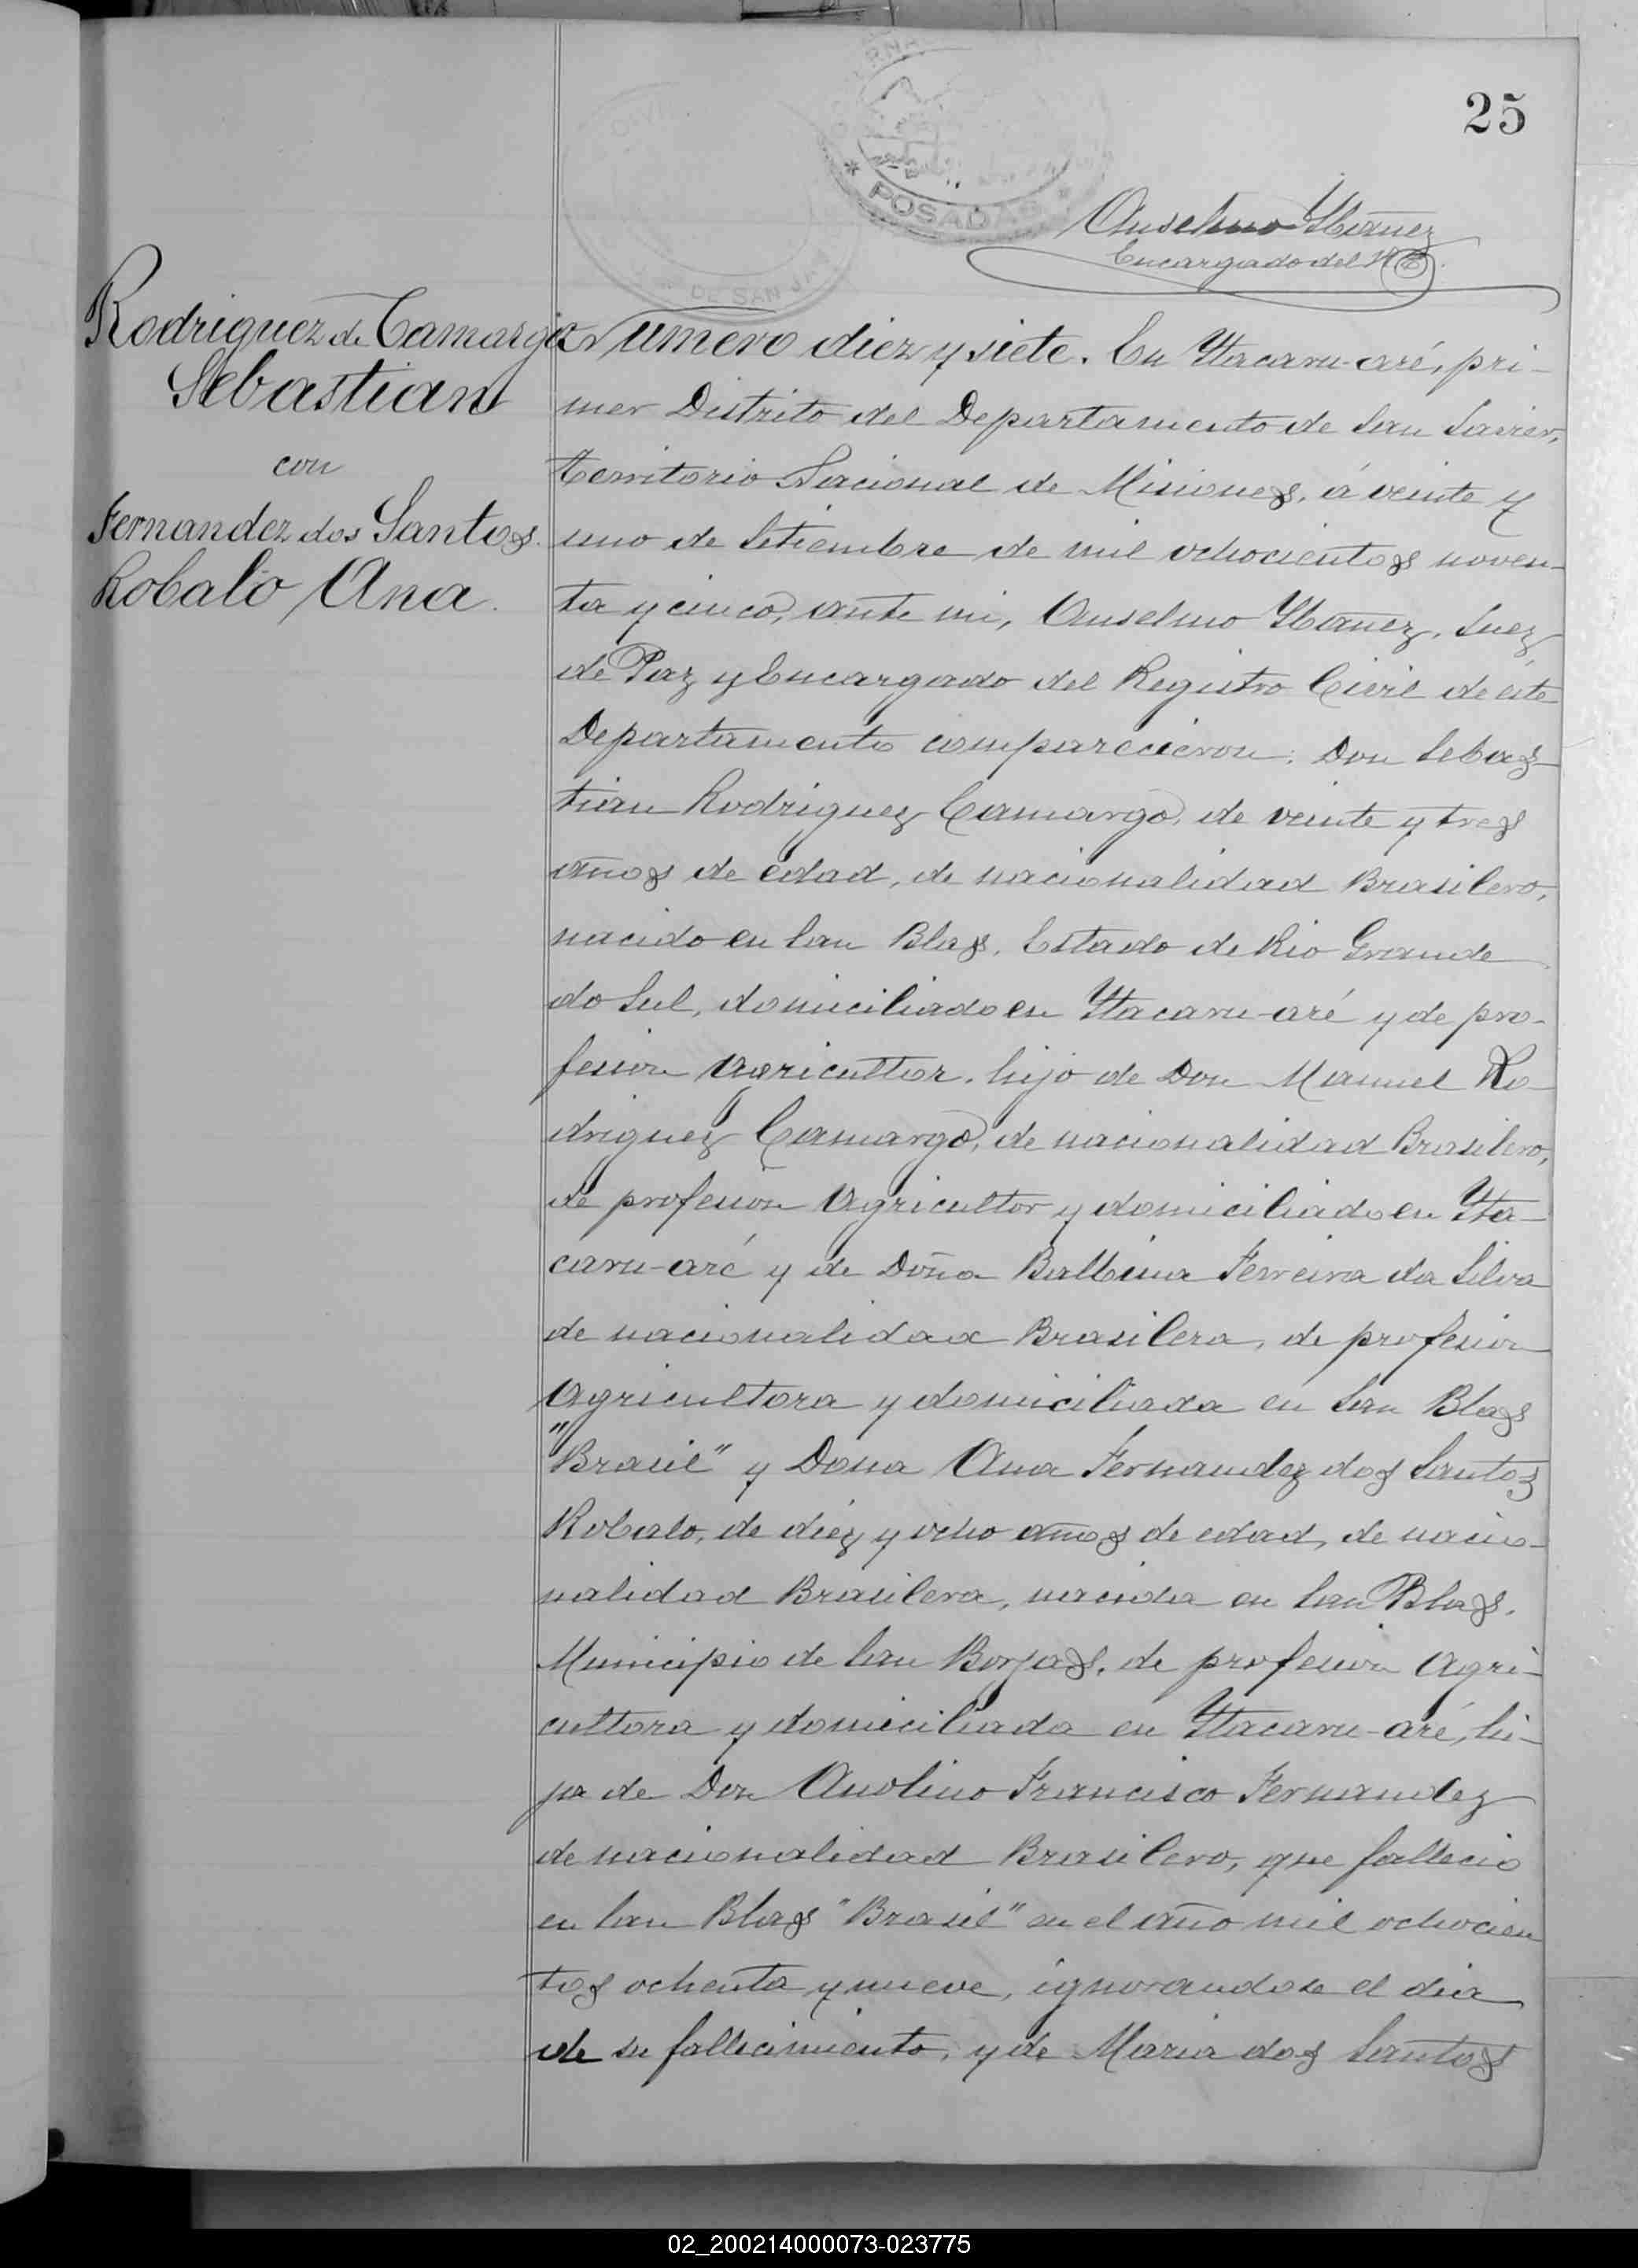 25
POSADAS
DE SAN JAV
Anselmo Ybañez
Encargado del R. C.
Rodriguez de Camargo
Sebastian
con
Fernandez dos Santos
Robalo Ana.
Numero diez y siete. En Ytacaru-aré, pri-
mer Distrito del Departamento de San Javier,
Territorio Nacional de Misiones, á veinte y
uno de Setiembre de mil ochocientos noven-
ta y cinco, ante mi, Anselmo Ybañez, Juez
de Paz y Encargado del Registro Civil de éste
Departamento comparecieron: Don Sebas-
tian Rodriguez Camargo, de veinte y tres
años de edad, de nacionalidad Brasilero,
nacido en San Blas, Estado de Rio Grande
do Sul, domiciliado en Ytacaru-aré y de pro-
fesion Agricultor, hijo de Don Manuel Ro-
driguez Camargo, de nacionalidad Brasilero,
de profesion Agricultor y domiciliado en Yta-
caru-aré y de Doña Balbina Ferreira da Silva
de nacionalidad Brasilera, de profesion
Agricultora y domiciliada en San Blas
"Brasil" y Dona Ana Fernandez dos Santos
Robalo, de diéz y ocho años de edad, de nacio-
nalidad Brasilera, nacida en San Blas,
Municipio de San Borjas, de profesion Agri-
cultora y domiciliada en Ytacaru-aré, hi-
ja de Don Anolino Francisco Fernandez
de nacionalidad Brasilero, que fallecio
en San Blas "Brasil" en el año mil ochocien
tos ochenta y nueve, ignorandose el dia
de su fallecimiento, y de Maria dos Santos
02_200214000073-023775